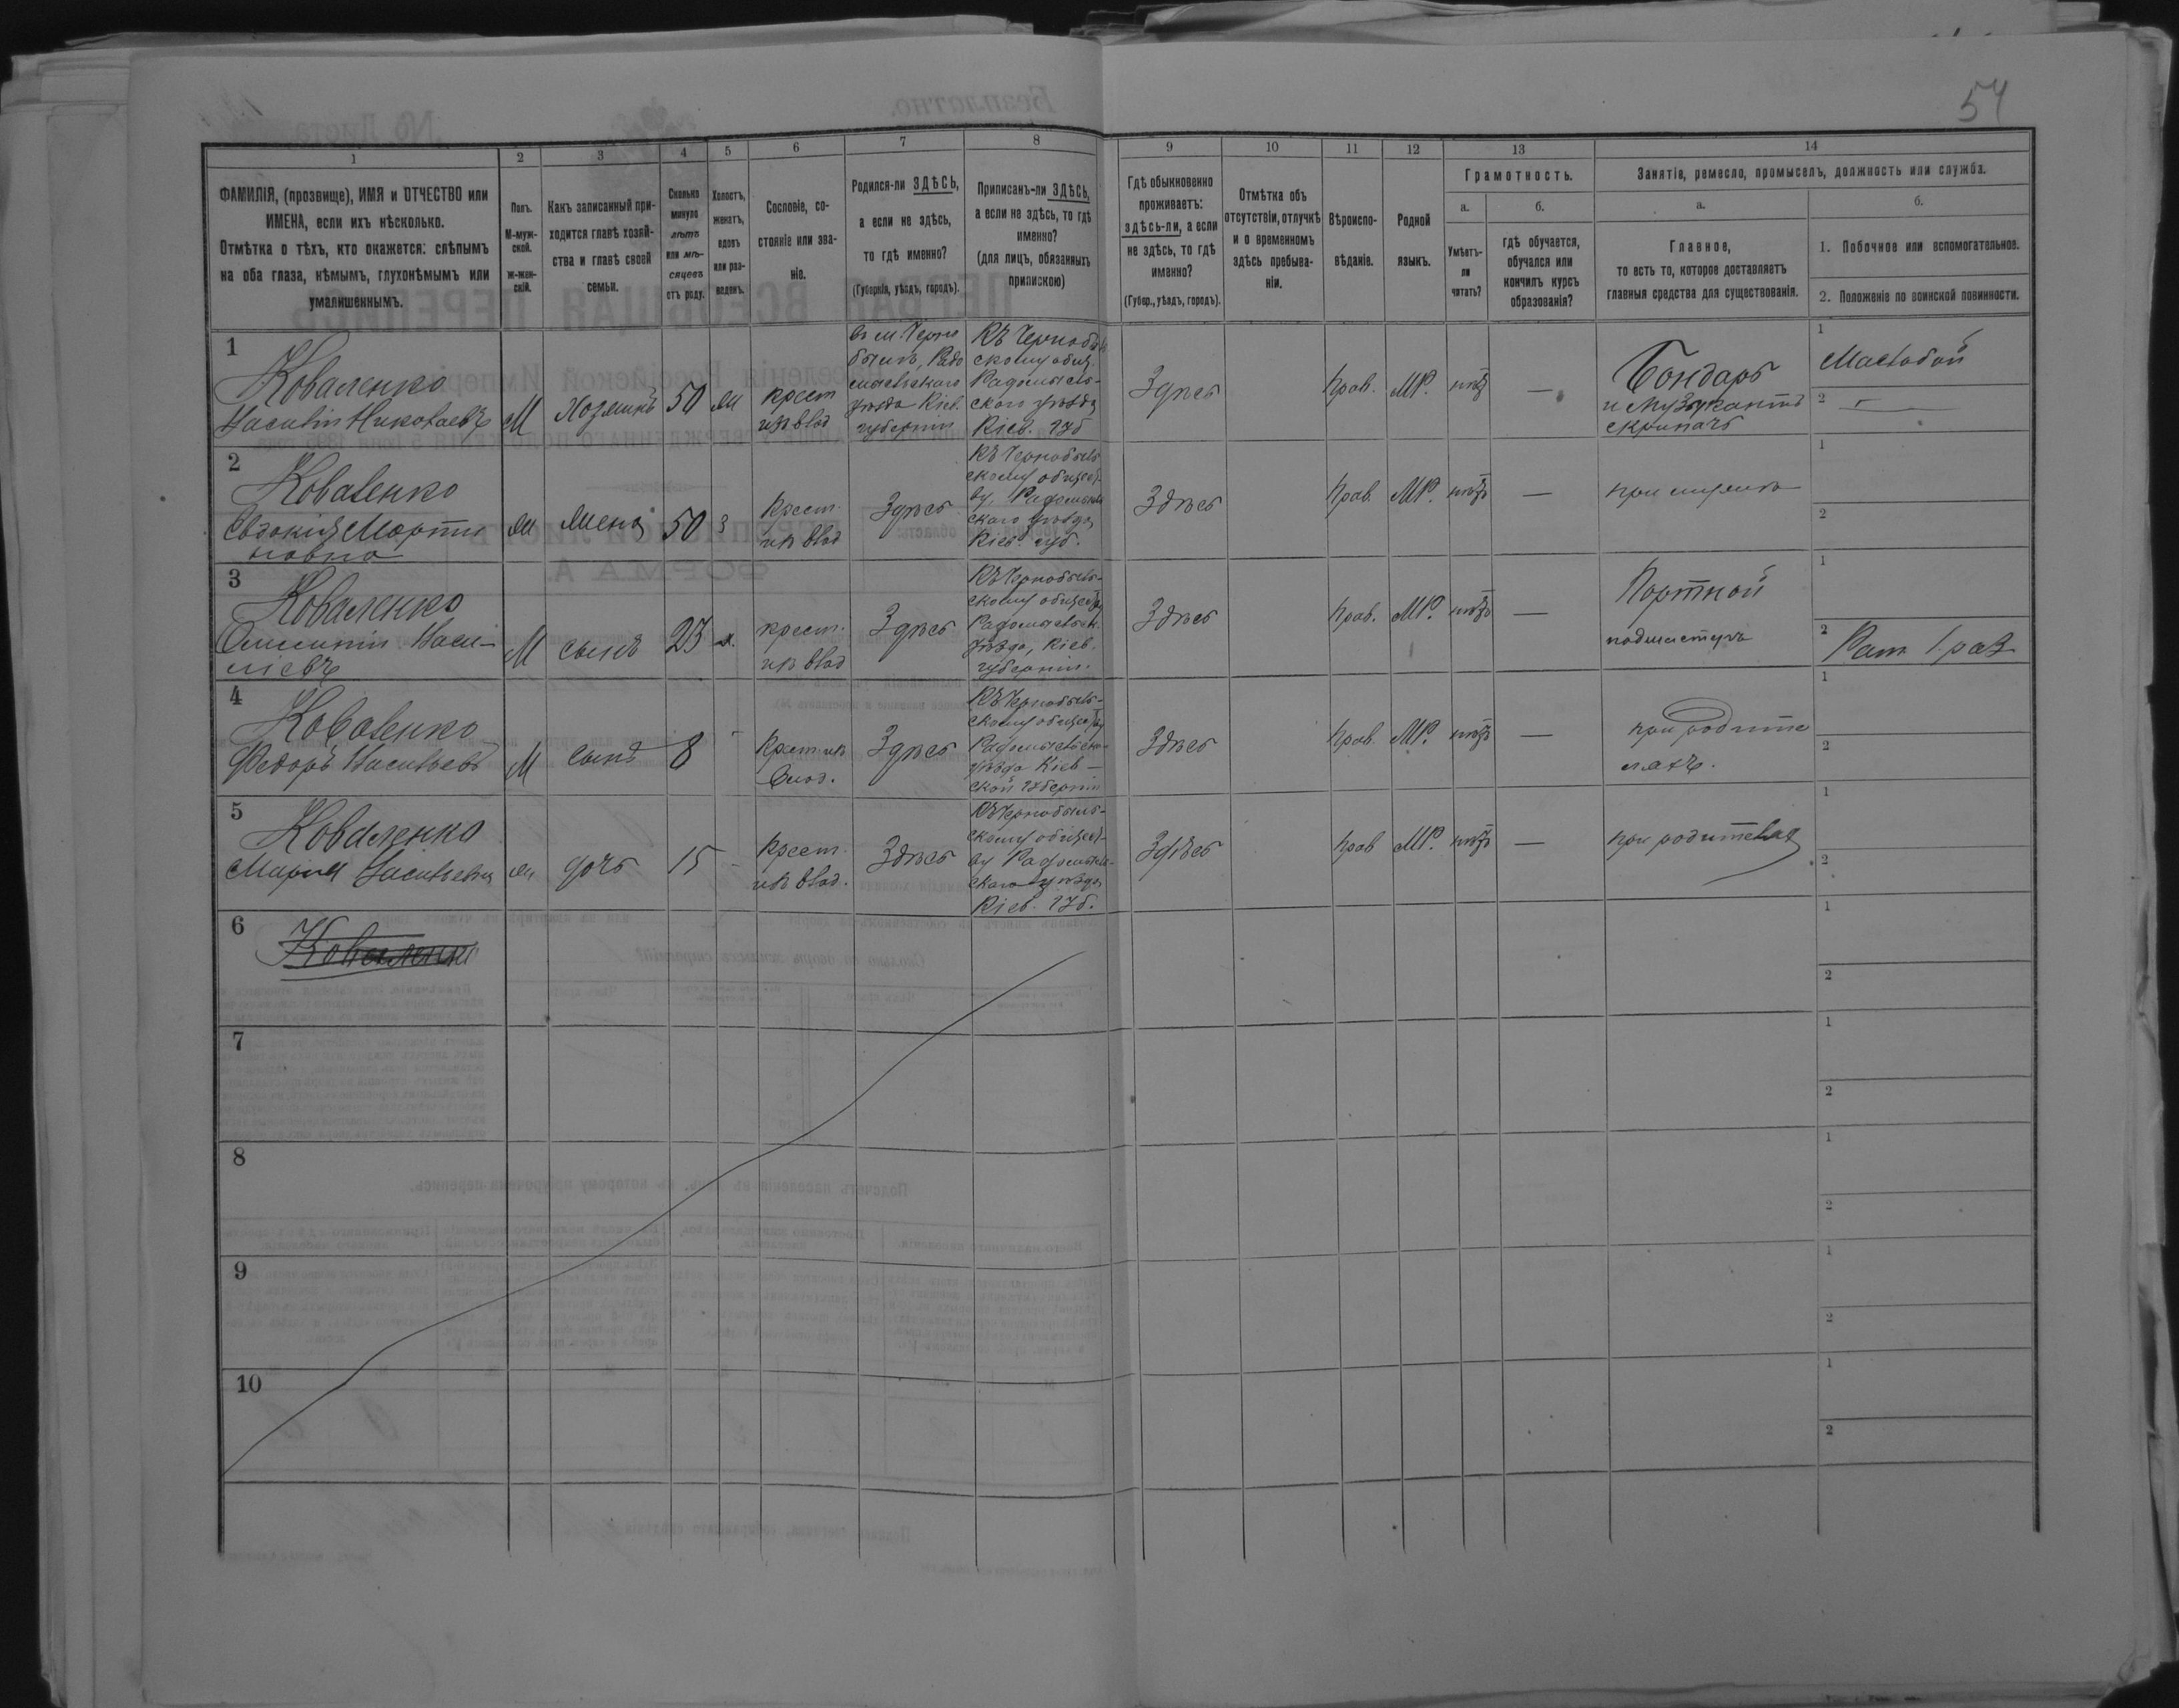 54
1
2
3
4
5
6
7
8
9
10
11
12
13
14
ФАМИЛІЯ, (прозвище), ИМЯ и ОТЧЕСТВО или
ИМЕНА, если ихъ нѣсколько.
Отмѣтка о тѣхъ, кто окажется: слѣпымъ
на оба глаза, нѣмымъ, глухонѣмымъ или
умалишеннымъ.
Полъ.
М-муж-
ской.
ж-жен-
скій.
Какъ записанный при-
ходится главѣ хозяй-
ства и главѣ своей
семьи.
Сколько
минуло
лѣтъ
или мѣ-
сяцевъ
отъ роду.
Холостъ,
женатъ,
вдовъ
или раз-
веденъ.
Сословіе, со-
стояніе или зва-
ніе.
Родился-ли ЗДѢСЬ,
а если не здѣсь,
то гдѣ именно?
(Губернія, уѣздъ, городъ).
Приписанъ-ли ЗДѢСЬ,
а если не здѣсь, то гдѣ
именно?
(для лицъ, обязанныхъ
припискою)
Гдѣ обыкновенно
проживаетъ:
здѣсь-ли, а если
не здѣсь, то гдѣ
именно?
(Губер., уѣздъ, городъ).
Отмѣтка объ
отсутствіи, отлучкѣ
и о временномъ
здѣсь пребыва-
ніи.
Вѣроиспо-
вѣданіе.
Родной
языкъ.
Грамотность.
а.
Умѣетъ-
ли
читать?
б.
гдѣ обучается,
обучался или
кончилъ курсъ
образованія?
Занятіе, ремесло, промыселъ, должность или служба.
а.
Главное,
то есть то, которое доставляетъ
главныя средства для существованія.
б.
1. Побочное или вспомогательное.
2. Положеніе по воинской повинности.
1
Коваленко
Василій Николаевъ
М
Хозяинъ
50
крест
из влад
въ м. Черно
былѣ, Радо
мысльскаго
уѣзда Кіев.
губерніи
Къ Чернобыль
скому общ.
Радомысль-
скаго уѣзда
Кіев. губ
Здѣсь
Прав.
МР.
нѣтъ
—
Бондарь
и музыкантъ
скрипачъ
1
2
2
Коваленко
Евдокія Марти
новна
жена
50
з
крест.
из влад
Здѣсь
Къ Чернобыль
скому общест
ву, Радомысль
скаго уѣзда
Кіев. губ.
Здѣсь
Прав.
МР.
нѣтъ
—
при мужѣ
1
2
3
Коваленко
Васи-
ліевъ
М
сынъ
23
х.
крест.
из влад
Здѣсь
Къ Чернобыль-
скому обществу
Радомысльск.
уѣзда, Кіев.
губерніи.
Здѣсь
Прав.
МР.
нѣтъ
—
Портной
подмастеръ
1
2
Рат. 1 раз.
4
Коваленко
Федоръ Васильевъ
М
сынъ
8
-
Крест. из
влад.
Здѣсь
Къ Чернобыль-
скому обществу
Радомысльска-
уѣзда Кіев-
ской губерніи
Здѣсь
Прав.
МР.
нѣтъ
—
при родите
ляхъ.
1
2
5
Коваленко
Марія Васильевна
дочь
15
-
Крест.
из влад.
Здѣсь
Къ Чернобыль-
скому общест-
ву Радомысль-
скаго уѣзда
Кіев. губ.
Здѣсь
Прав
МР.
нѣтъ
—
при родителях
1
2
6
Коваленко
1
2
7
1
2
8
1
2
9
1
2
10
1
2